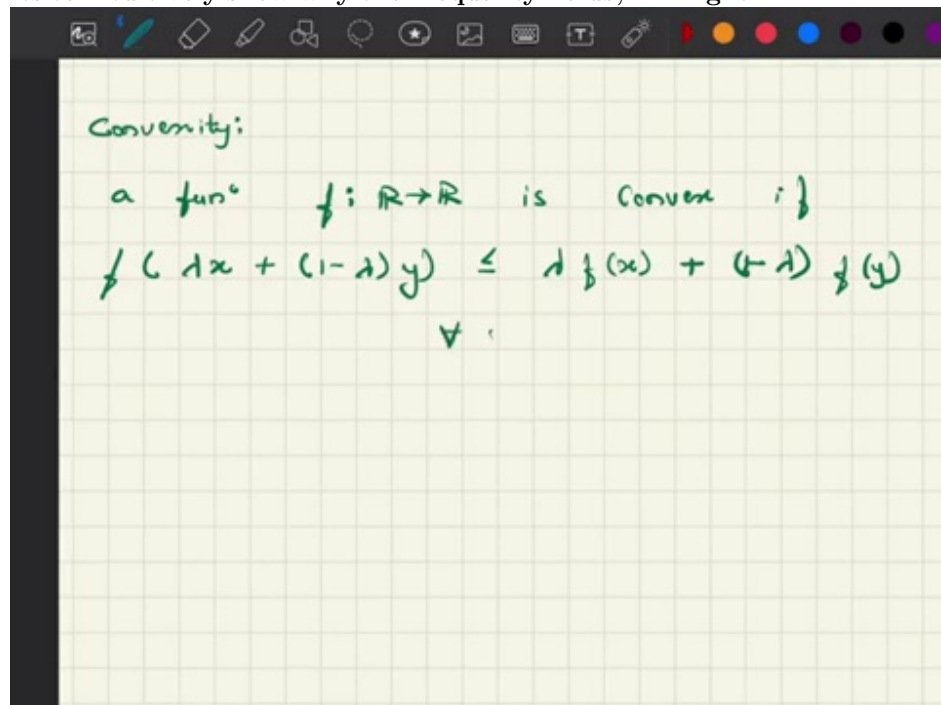 Convexity:
a funᶜ f: ℝ→ℝ is Convex if
f ( λx + (1-λ) y) ≤ λ f(x) + (1-λ) f(y)
∀